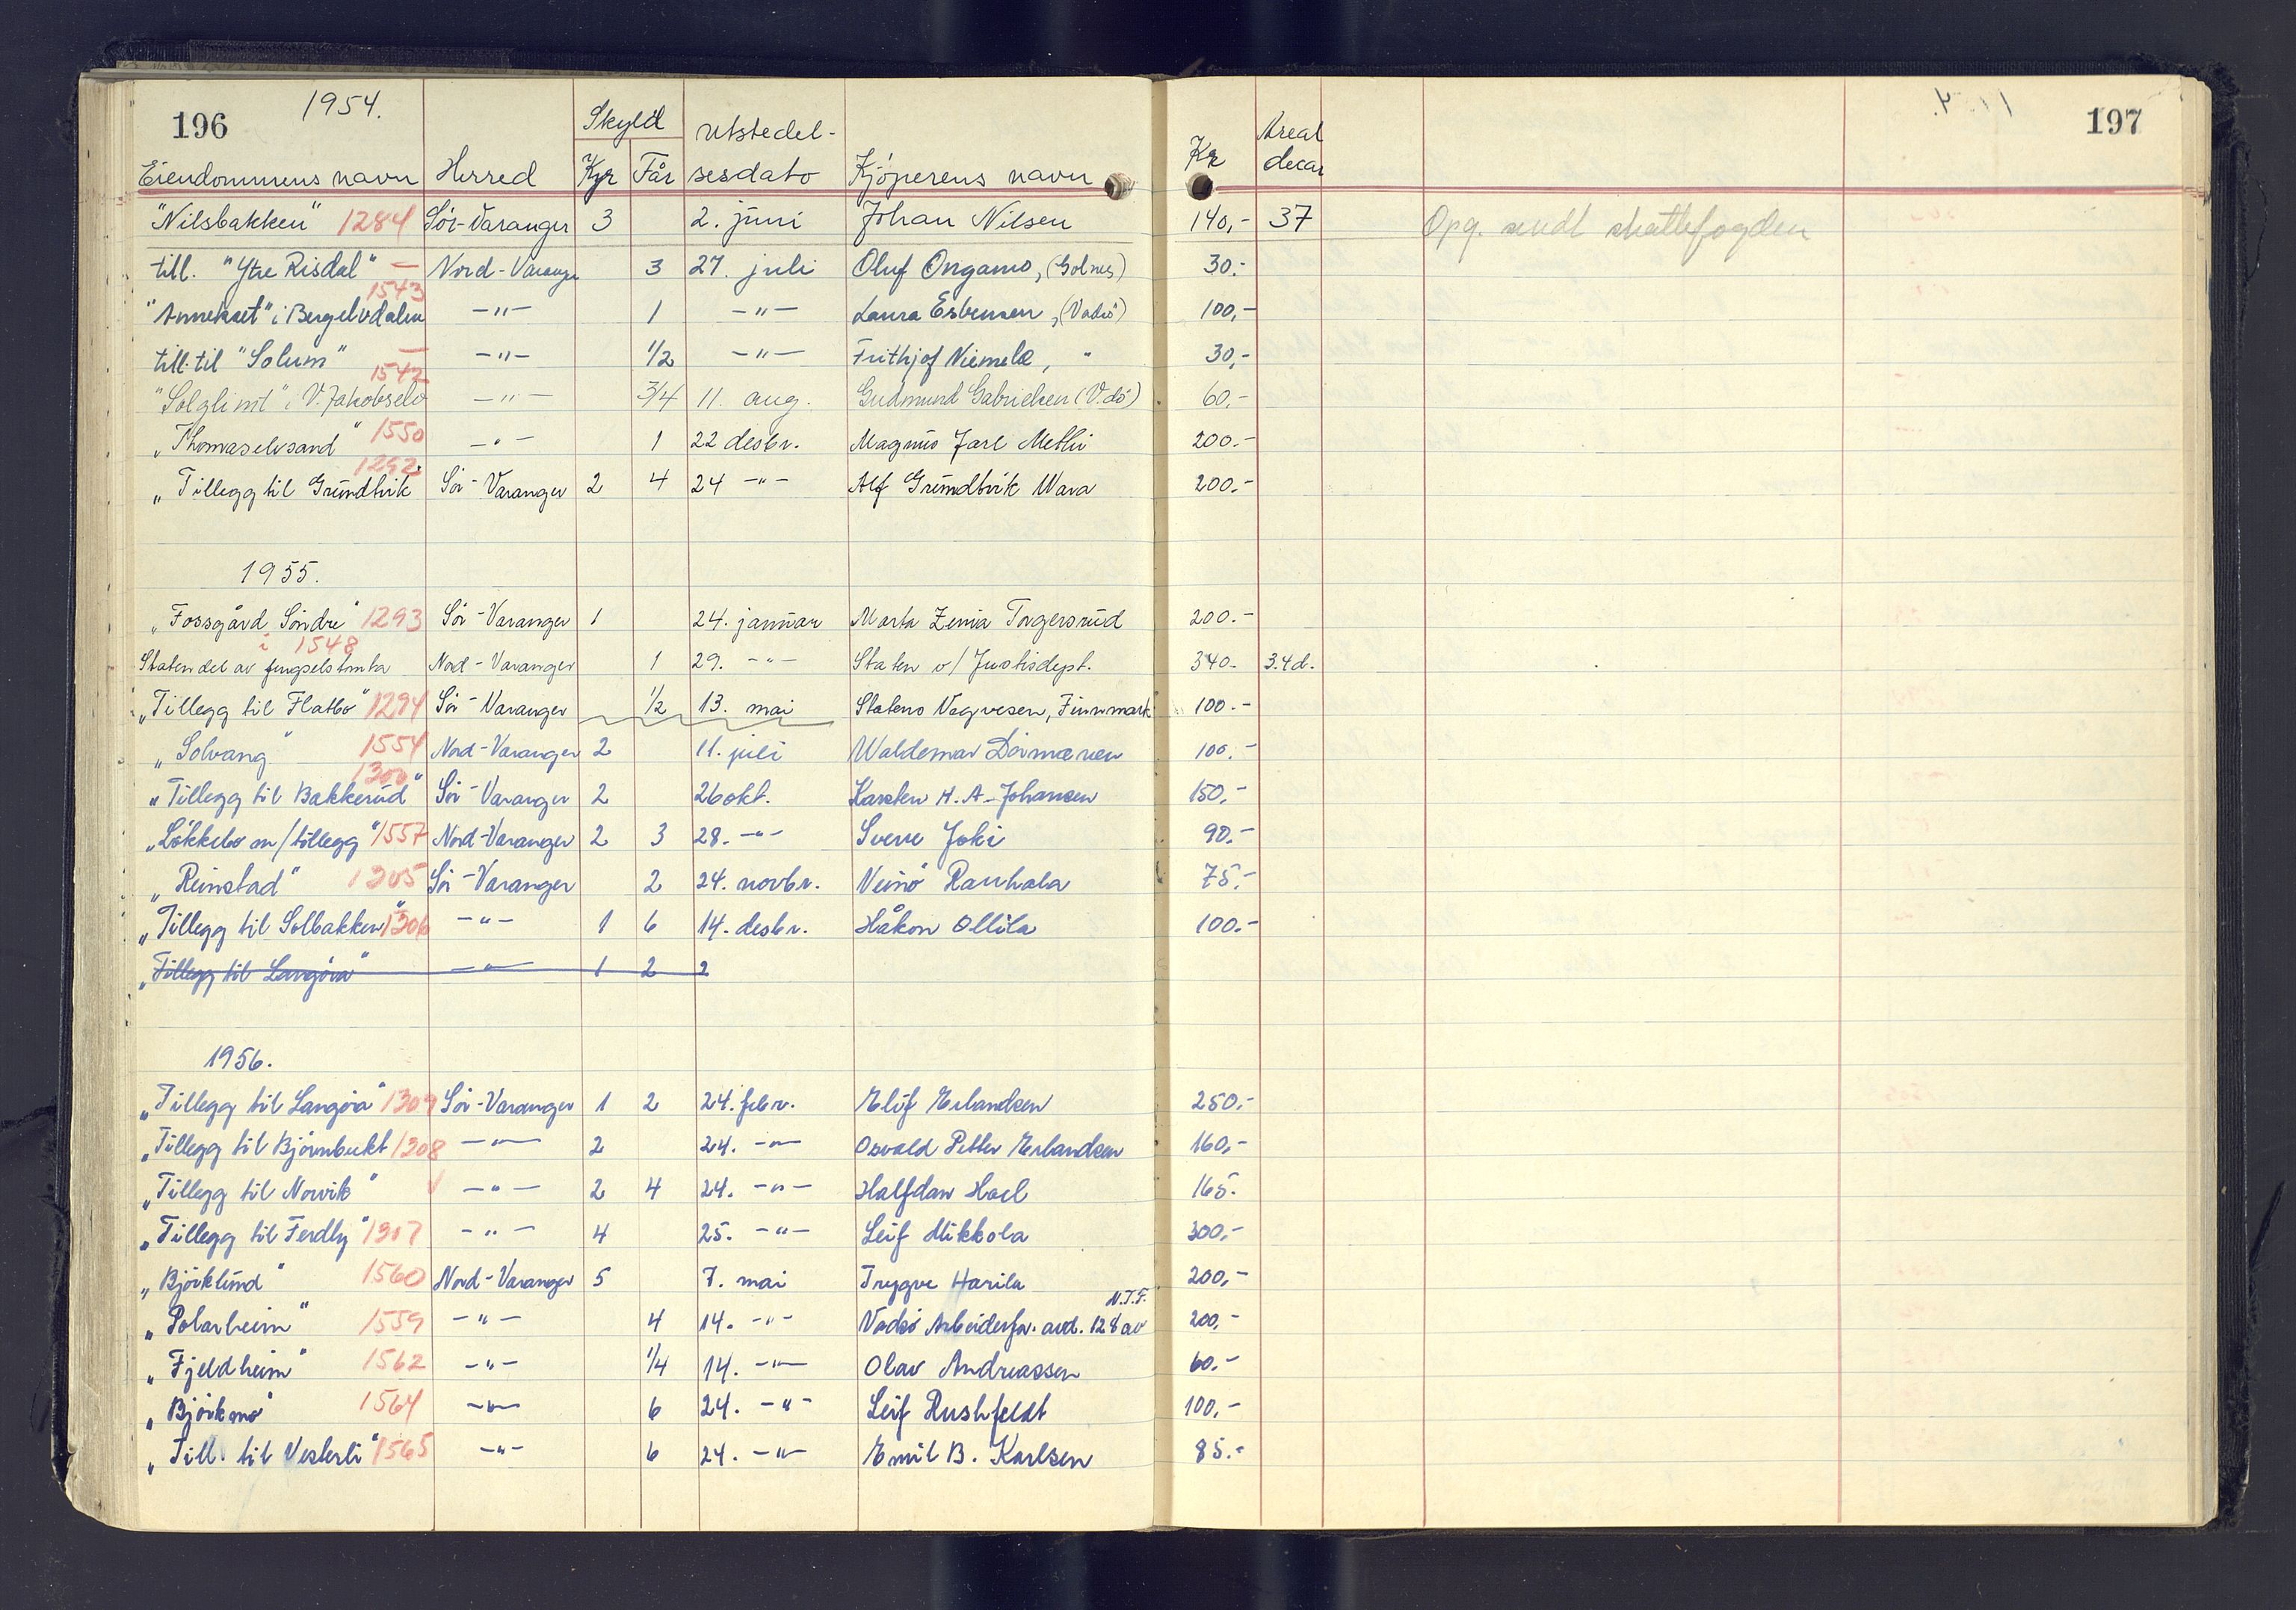 196 1954. 197
Skyld Utstedel- Areal
Eiendommens navn Herred Kyr Får sesdato Kjöperens navn Kr decar
"Nilsbakken" 1284 Sör-Varanger 3 2. juni Johan Nilsen 140,- 37 Opg. sendt skattefogden
till. "Ytre Risdal" — Nord-Varanger 3 27. juli Oluf Ongamo, (Golnes) 30.-
1543
"Annekset" i Bergelvdalen —"— 1 —"— Laura Esbensen, (Vadsö) 100,-
till. til "Solum" — —"— 1/2 —"— Frithjof Niemelæ, " 30,-
1542
"Solglimt" i V. Jakobselv —"— 3/4 11. aug. Gudmund Gabrielsen (V.dsö) 60.-
"Thomaselvsand" 1550 —"— 1 22 desbr. Magnus Jarl Methi 200.-
1292
"Tillegg til Grundtvik Sör-Varanger 2 4 24 —"— Alf Grundtvik Wara 200.-
1955.
"Fossgård Söndre" 1293 Sör-Varanger 1 24. januar Marta Zenia Torgersrud 200.-
i 1548
Staten del av fengselstomta Nord-Varanger 1 29. —"— Staten v/ Justisdept. 340.- 3.4 d.
"Tillegg til Flatbo" 1294 Sör-Varanger 1/2 13. mai Statens Vegvesen, Finnmark 100.-
"Solvang" 1554 Nord-Varanger 2 11. juli Waldemar Dörmænen 100.-
1300
"Tillegg til Bakkerud" Sör-Varanger 2 26 okt. Karsten H. A. Johansen 150,-
"Lökkebo m/tillegg" 1557 Nord-Varanger 2 3 28. —"— Sverre Joki 90.-
"Reinstad" 1305 Sör-Varanger 2 24. novbr. Veinö Rauhala 75.-
"Tillegg til Solbakken" 1306 —"— 1 6 14. desbr. Håkon Ollila 100.-
"Tillegg til Langöra" —"— 1 2 2
1956.
"Tillegg til Langöra" 1309 Sör-Varanger 1 2 24. febr. Elif Erlandsen 250.-
"Tillegg til Björnbukt 1308 —"— 2 24. —"— Osvald Petter Erlandsen 160,-
"Tillegg til Norvik" √ —"— 2 4 24. —"— Halfdan Hael 165.
"Tillegg til Ferdly" 1307 —"— 4 25. —"— Leif Mikkola 300,-
"Björklund" 1560 Nord-Varanger 5 7. mai Trygve Harila 200,-
N.T.F.
"Polarheim" 1559 —"— 4 14. —"— Vadsö Arbeiderfor. avd. 128 av 200,-
"Fjeldheim" 1562 —"— 1/4 14. —"— Olav Andreassen 60.-
"Björkmo" 1564 —"— 6 24. —"— Leif Rushfeldt 100,-
"Till. til Vesterli" 1565 —"— 6 24. —"— Emil B. Karlsen 85.-